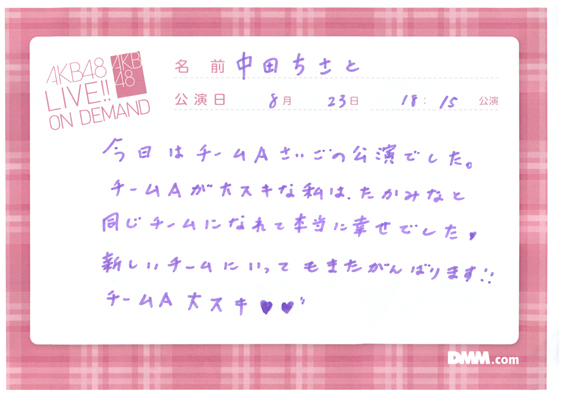 AKB48
LIVE!!
ON DEMAND
AKB
48
名前 中田ちさと
公演日 8月 23日 18:15 公演
今日はチームAさいごの公演でした。
チームAが大スキな私は、たかみなと
同じチームになれて本当に幸せでした♥
新しいチームにいってもまたがんばります!!
チームA 大スキ ♥♥"
DMM.com